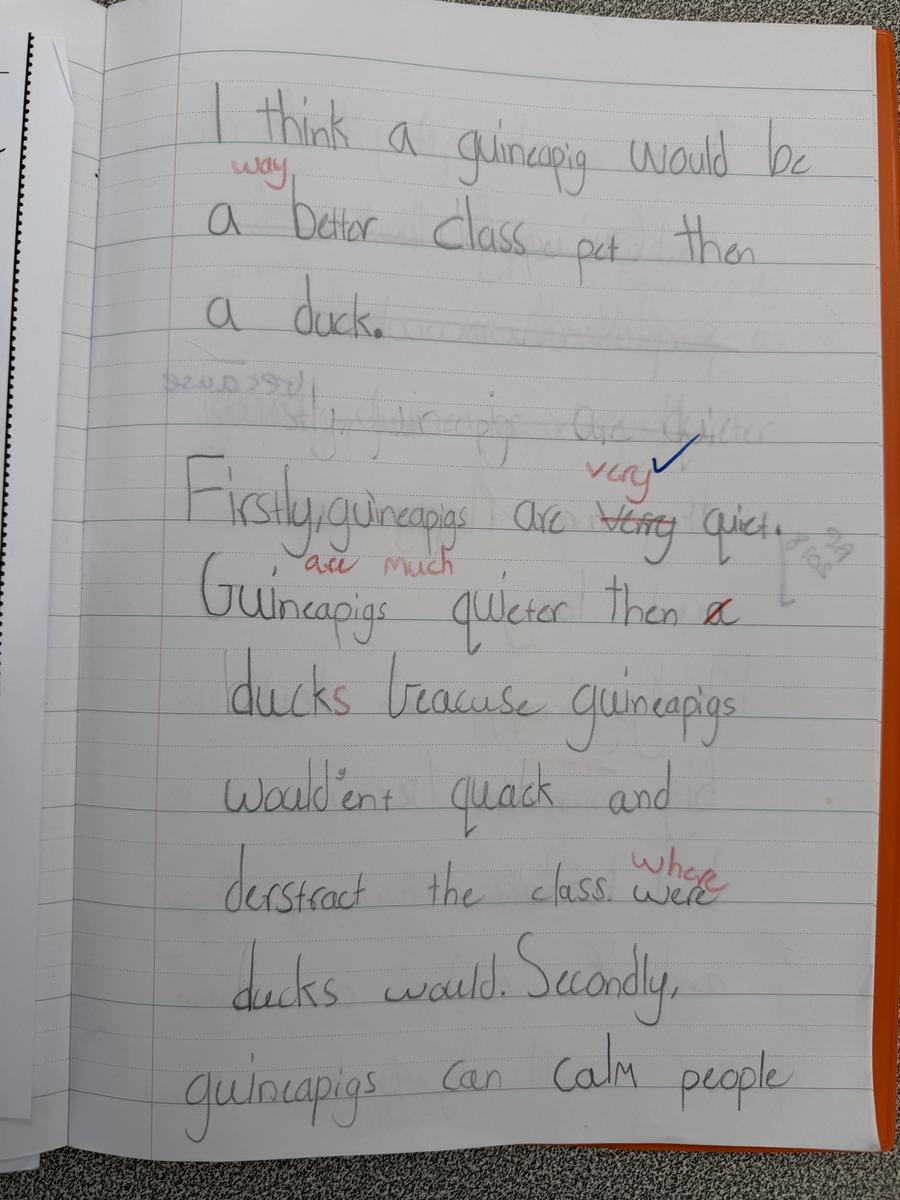 I think a guineapig would be
way
a better class pet then
a duck.
very
Firstly, guineapigs are very quiet.
are much
Guineapigs quieter then a
ducks beacuse guineapigs
would'ent quack and
derstract the class. where
were
ducks would. Secondly,
guineapigs can calm people